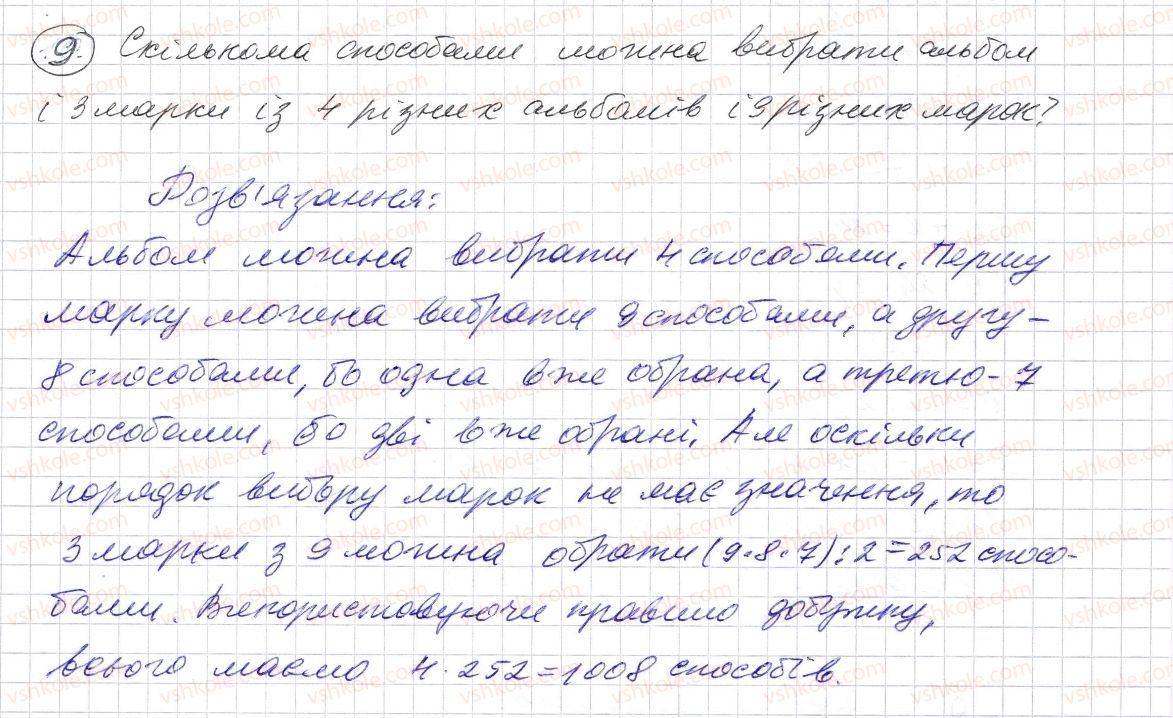 9. Скількома способами можна вибрати альбом
і 3 марки із 4 різних альбомів і 9 різних марок?
Розв'язання:
Альбом можна вибрати 4 способами. Першу
марку можна вибрати 9 способами, а другу –
8 способами, бо одна вже обрана, а третю - 7
способами, бо дві вже обрані. Але оскільки
порядок вибору марок не має значення, то
3 марки з 9 можна обрати (9·8·7):2=252 спосо-
бами. Використовуючи правило добутку,
всього маємо 4·252=1008 способів.
vshkole.com